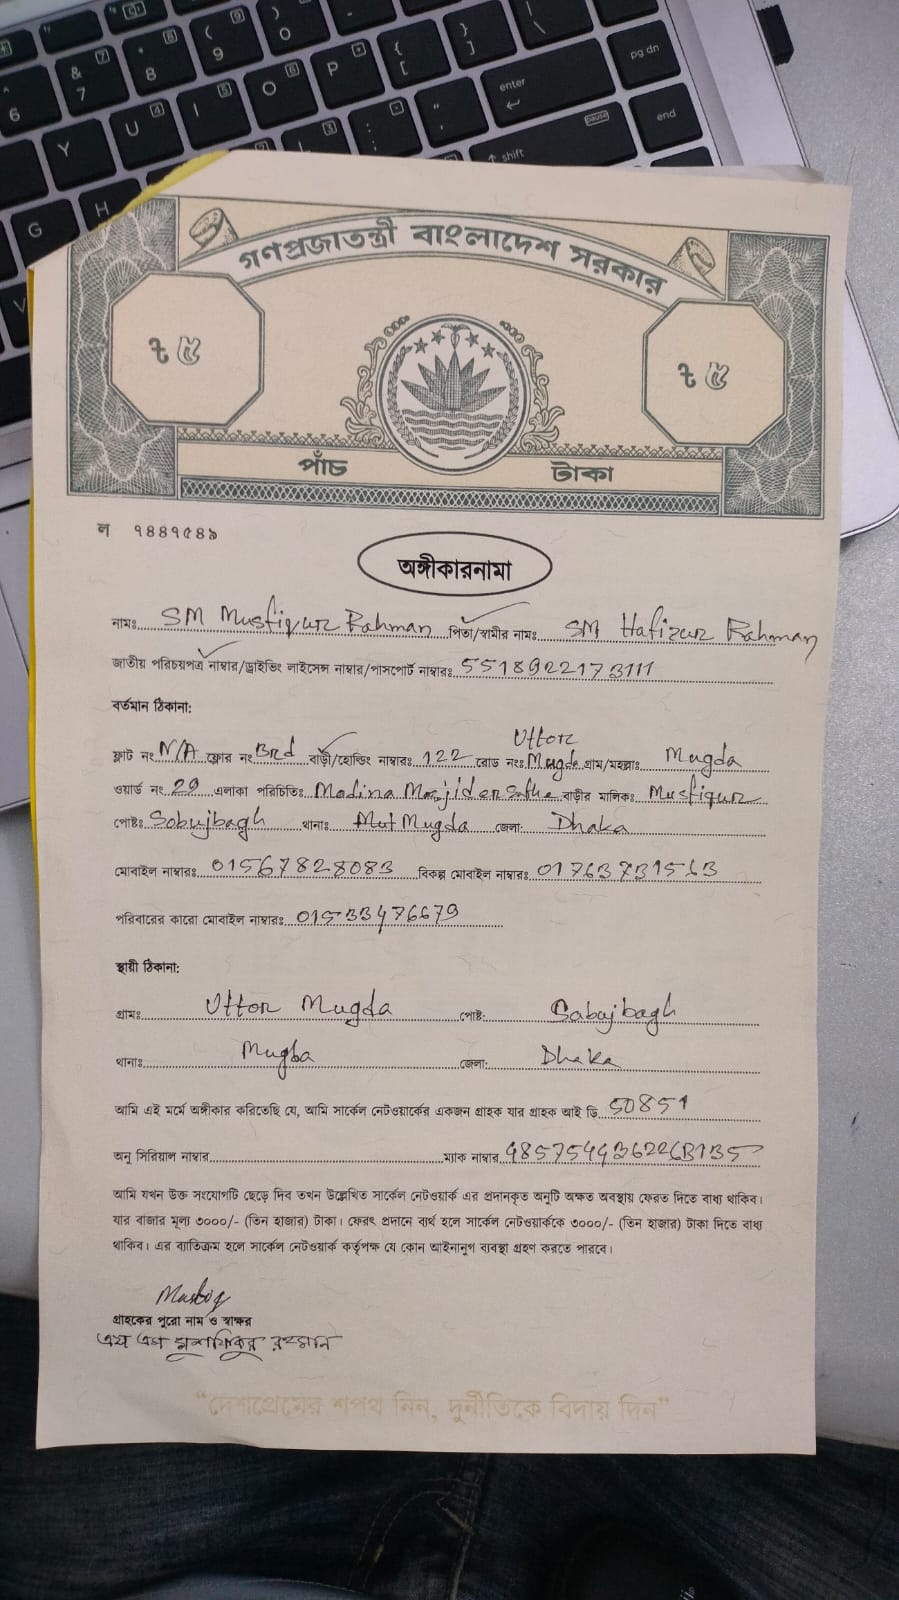 গণপ্রজাতন্ত্রী বাংলাদেশ সরকার
৳ ৫ ৳ ৫
পাঁচ টাকা
ল ৭৪৪৭৫৪৯
অঙ্গীকারনামা
নামঃ SM Musfiqur Rahman পিতা/স্বামীর নামঃ SM Hafizur Rahman
জাতীয় পরিচয়পত্র নাম্বার/ড্রাইভিং লাইসেন্স নাম্বার/পাসপোর্ট নাম্বারঃ 5518922173111
বর্তমান ঠিকানা:
Uttor
ফ্লাট নং N/A ফ্লোর নং 3rd বাড়ী/হোল্ডিং নাম্বারঃ 122 রোড নংঃ Mugda গ্রাম/মহল্লাঃ Mugda
ওয়ার্ড নং 29 এলাকা পরিচিতিঃ Madina Masjid er বাড়ীর মালিকঃ Musfiqur
পোষ্টঃ Sobujbagh থানাঃ Mugda জেলা: Dhaka
মোবাইল নাম্বারঃ 01567828083 বিকল্প মোবাইল নাম্বারঃ 01763731563
পরিবারের কারো মোবাইল নাম্বারঃ 01533476679
স্থায়ী ঠিকানা:
গ্রামঃ Uttor Mugda পোষ্ট: Sabujbagh
থানাঃ Mugba জেলা: Dhaka
আমি এই মর্মে অঙ্গীকার করিতেছি যে, আমি সার্কেল নেটওয়ার্কের একজন গ্রাহক যার গ্রাহক আই ডি 50851
অনু সিরিয়াল নাম্বার ম্যাক নাম্বার
আমি যখন উক্ত সংযোগটি ছেড়ে দিব তখন উল্লেখিত সার্কেল নেটওয়ার্ক এর প্রদানকৃত অনুটি অক্ষত অবস্থায় ফেরত দিতে বাধ্য থাকিব।
যার বাজার মূল্য ৩০০০/- (তিন হাজার) টাকা। ফেরৎ প্রদানে ব্যর্থ হলে সার্কেল নেটওয়ার্ককে ৩০০০/- (তিন হাজার) টাকা দিতে বাধ্য
থাকিব। এর ব্যতিক্রম হলে সার্কেল নেটওয়ার্ক কর্তৃপক্ষ যে কোন আইনানুগ ব্যবস্থা গ্রহণ করতে পারবে।
গ্রাহকের পুরো নাম ও স্বাক্ষর
এস এম মুশফিকুর রহমান
“দেশপ্রেমের শপথ নিন, দুর্নীতিকে বিদায় দিন”